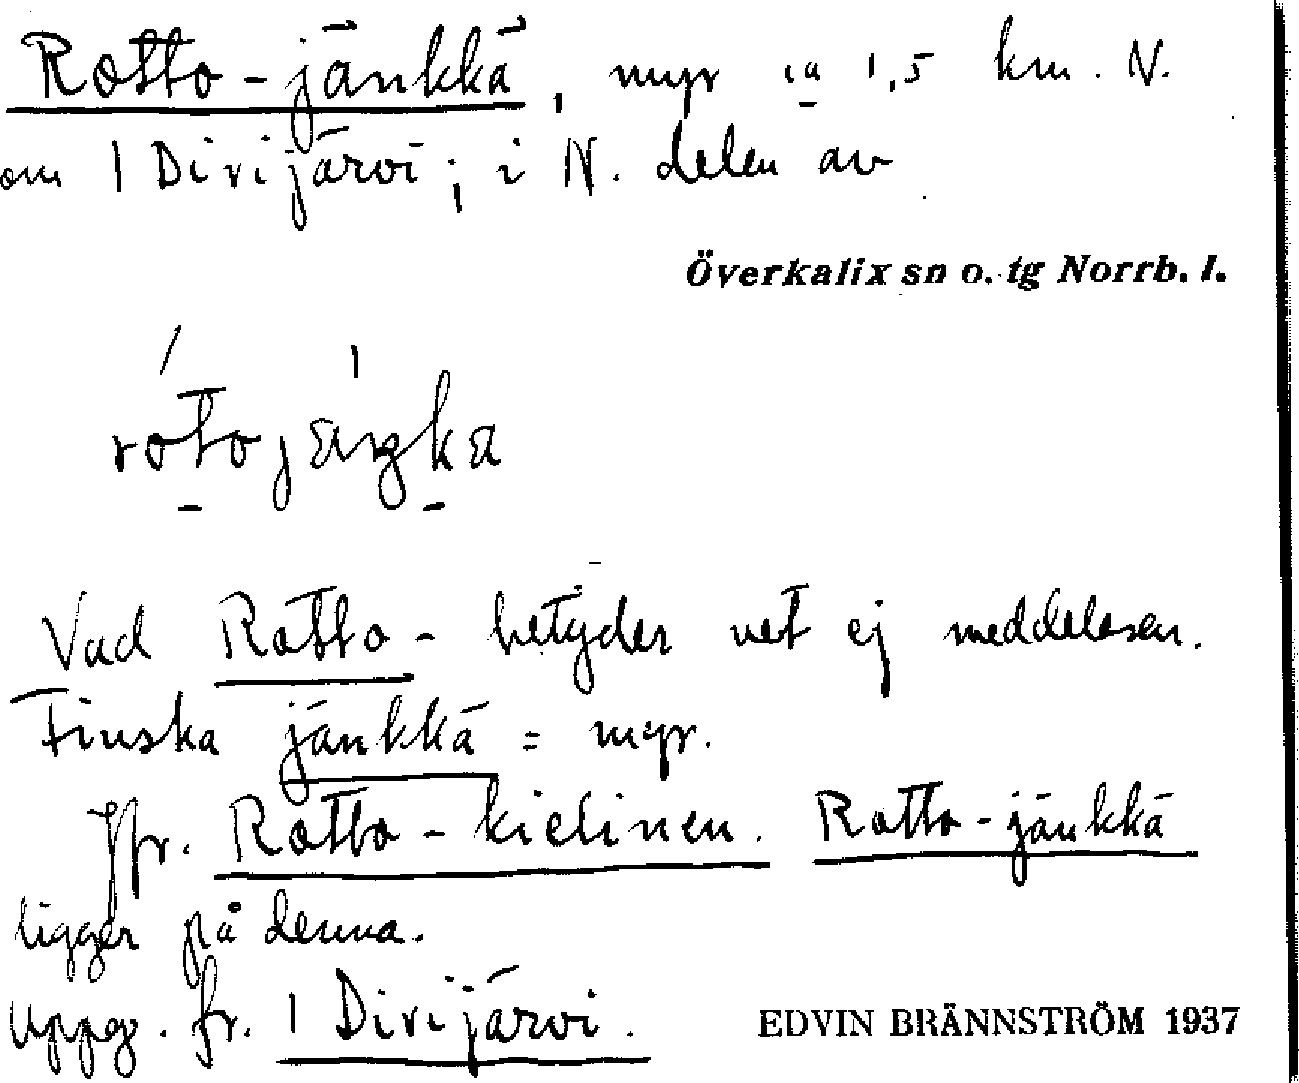 Rotto-jänkkä, myr ca 1,5 km. N.
om 1 Divijärvi; i N. delen av
Överkalix sn o. tg Norrb. l.
Vad Rotto- betyder vet ej meddelaren.
Finska jänkkä = myr.
Jfr. Rotto-kielinen. Rotto-jänkkä
ligger på denna.
Uppg. fr. 1 Divijärvi.
EDVIN BRÄNNSTRÖM 1937